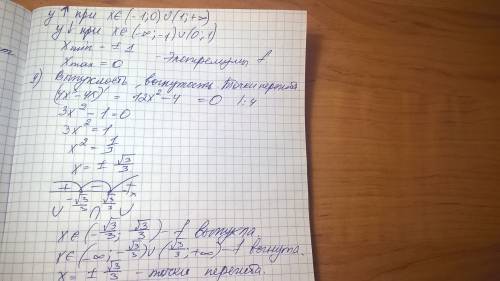 y ↑ при x∈(-1;0)∪(1;+∞)
y ↓ при x∈(-∞;-1)∪(0;1)
xmin = ±1
xmax = 0 - Экстремумы f
8) Выпуклость, вогнутость. Точки перегиба
(4x³-4x)' = 12x²-4 = 0 |:4
3x²-1=0
3x²=1
x² = 1/3
x = ± √3/3
+ - +
-√3/3 √3/3 x
∪ ∩ ∪
x∈(-√3/3; √3/3) - f выпукла.
x∈(-∞; -√3/3)∪(√3/3; +∞) - f вогнута.
x = ± √3/3 - точки перегиба.